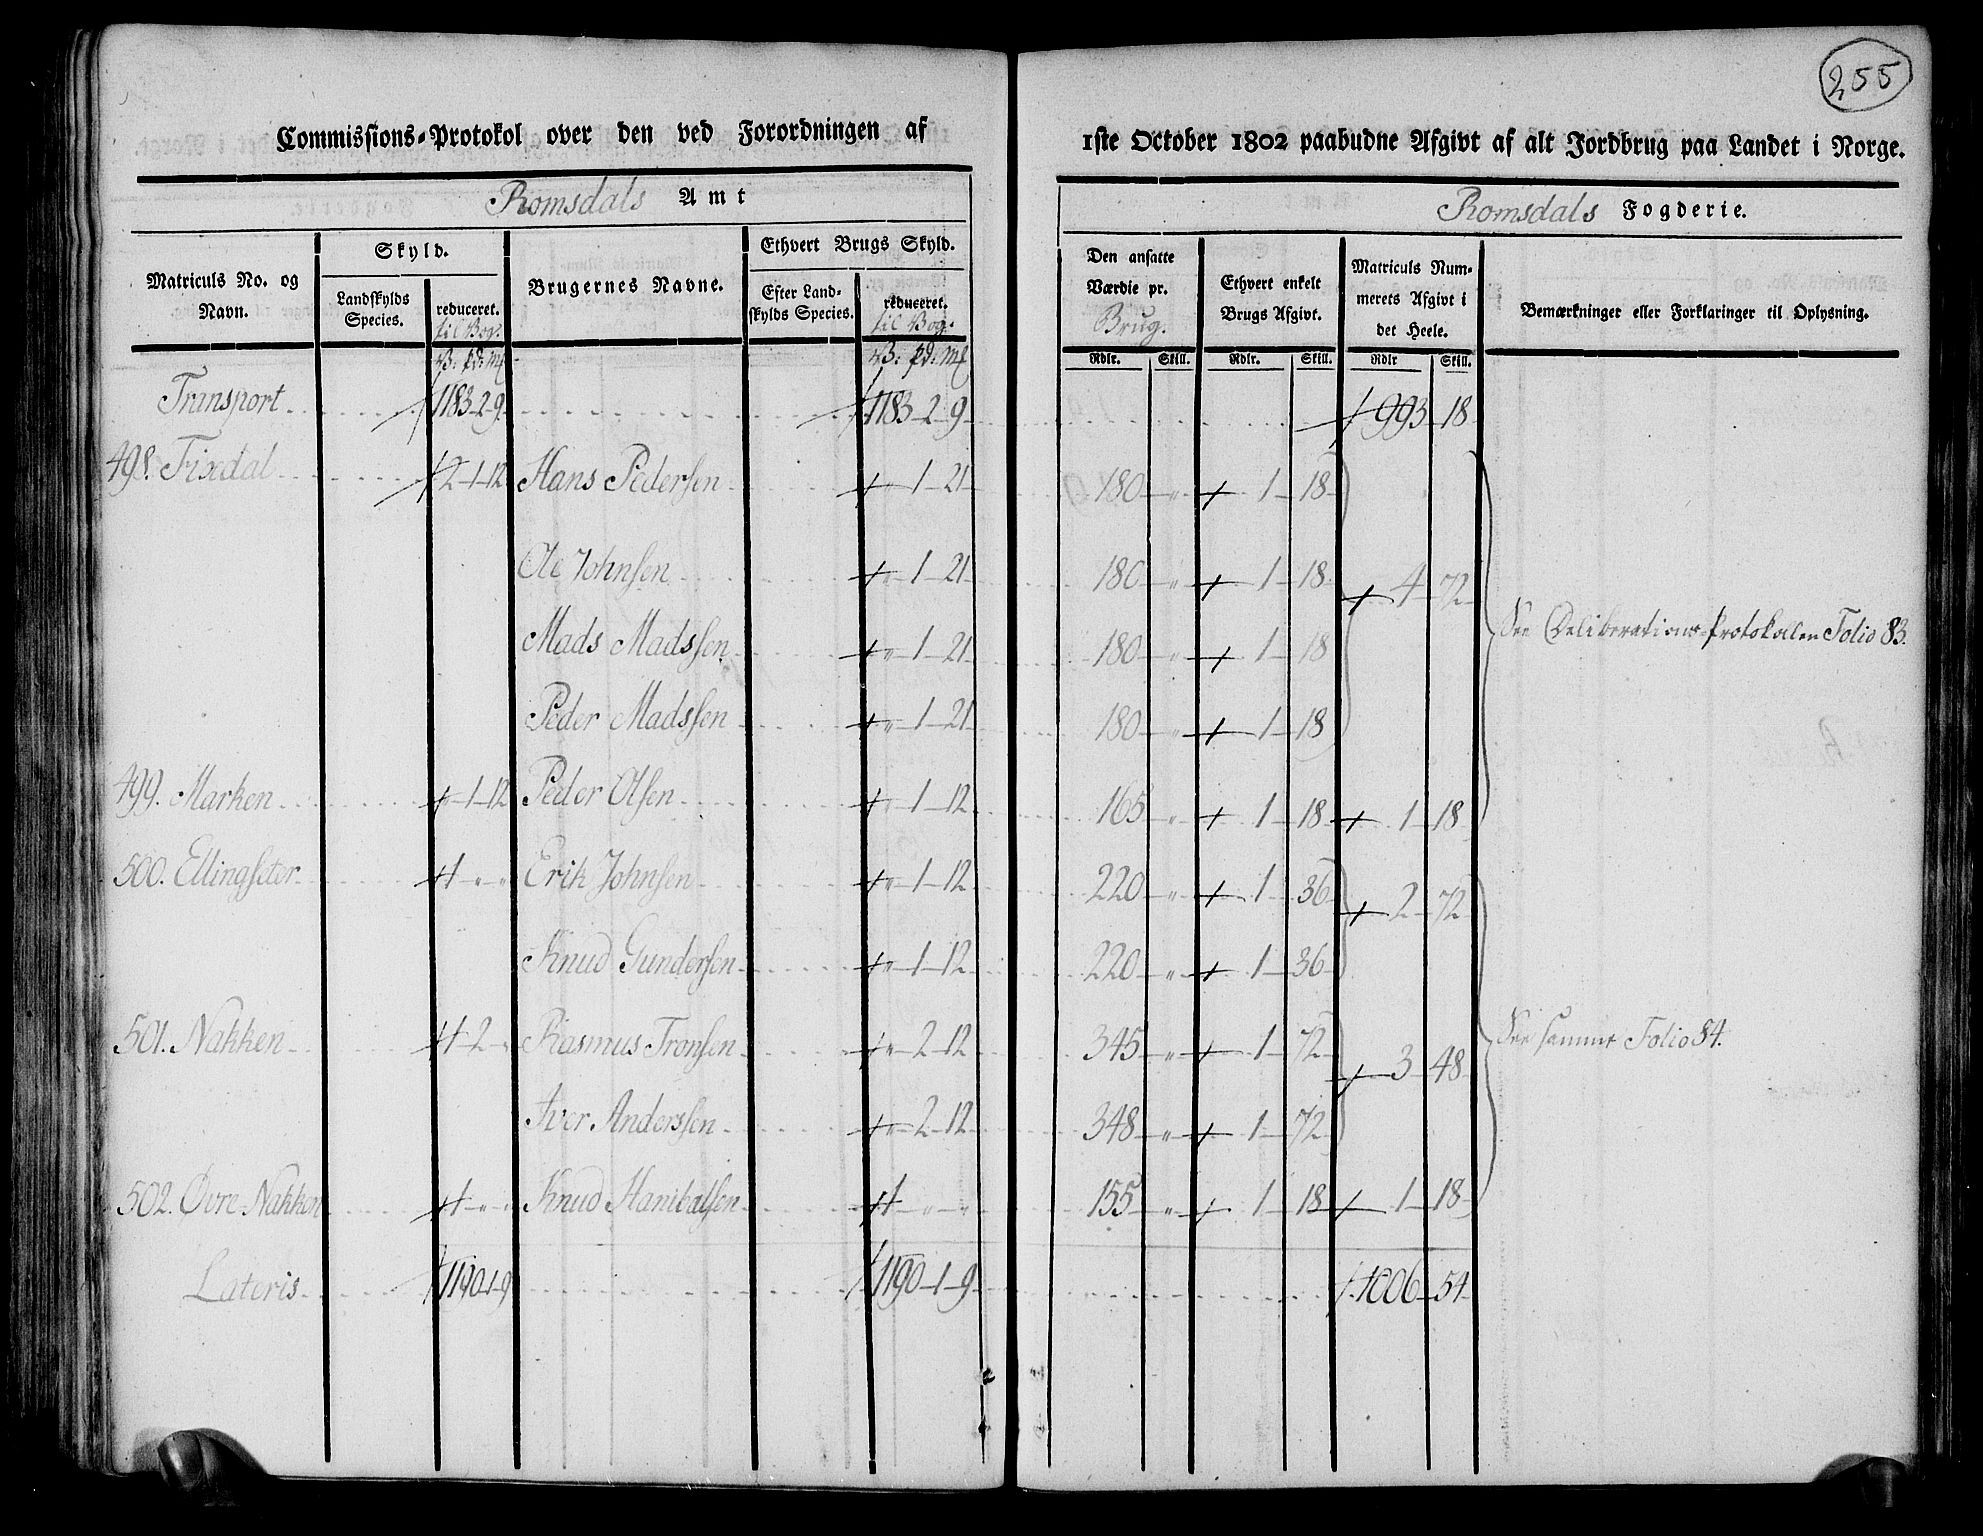 255
Commissions-Protokol over den ved Forordningen af 1ste October 1802 paabudne Afgivt af alt Jordbrug paa Landet i Norge.
Romsdals Amt
Romsdals Fogderie.
Matriculs No. og Navn.
Skyld.
Landskylds Species.
reduceret. til Vog.
Brugernes Navne.
Ethvert Brugs Skyld.
Efter Landskylds Species.
reduceret. til Vog.
Den ansatte Værdie pr. Brug.
Ethvert enkelt Brugs Afgivt.
Matriculs Nummerets Afgivt i det Heele.
Bemærkninger eller Forklaringer til Oplysning.
V. pd: mk V. pd: mk Rdlr. Skill. Rdlr. Skill. Rdlr Skill.
Transport 1183-2-9 1183-2-9 993-18
498. Fixdal 2-1-12 Hans Pedersen " 1-21 180 " 1-18
Ole Johnsen " 1-21 180 " 1-18 4-72
Mads Madssen " 1-21 180 " 1-18 See Deliberations-Protokollen Folio 83.
Peder Madssen " 1-21 180 " 1-18
499. Marken " 1-12 Peder Olsen " 1-12 165 " 1-18 1-18
500. Ellingseter 1 " " Erik Johnsen " 1-12 220 " 1-36 2-72
Knud Gundersen " 1-12 220 " 1-36
501. Nakken 1-2 " Rasmus Tronsen " 2-12 345 " 1-72 3-48 See samme Folio 84.
Iver Anderssen " 2-12 348 " 1-72
502. Øvre Nakken 1 " " Knud Hanibalsen 1 " " 155 " 1-18 1-18
Lateris 1190-1-9 1190-1-9 1006-54